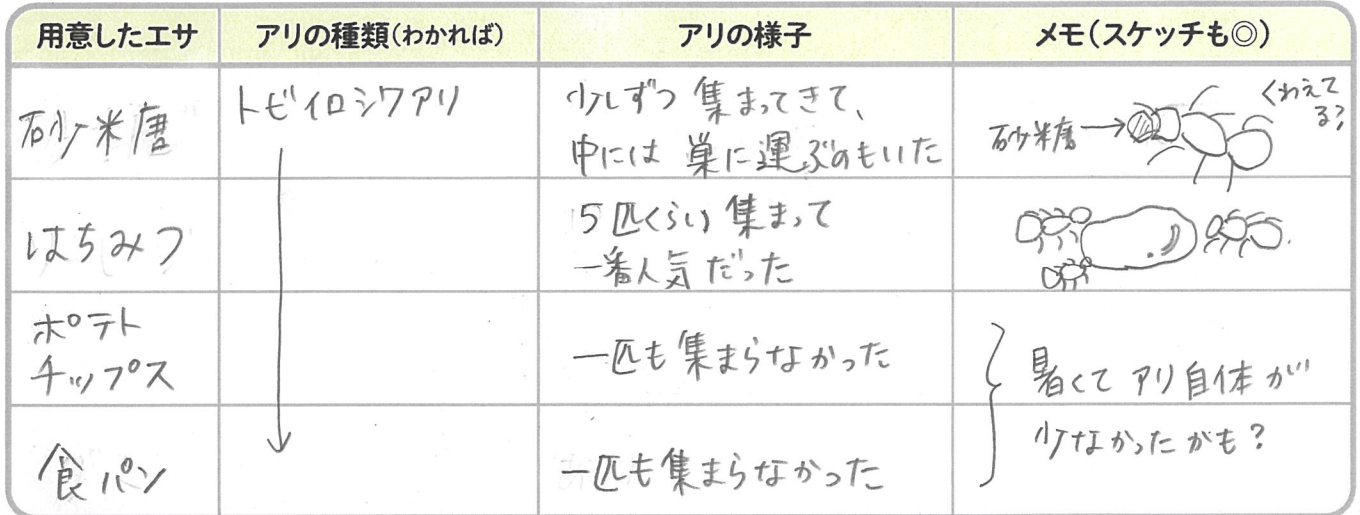 用意したエサ
アリの種類(わかれば)
アリの様子
メモ(スケッチも◎)
砂糖
トビイロシワアリ
少しずつ集まってきて、
中には巣に運ぶのもいた
砂糖→
くわえて
る?
はちみつ
5匹くらい集まって
一番人気だった
ポテト
チップス
一匹も集まらなかった
暑くてアリ自体が
少なかったかも?
食パン
一匹も集まらなかった